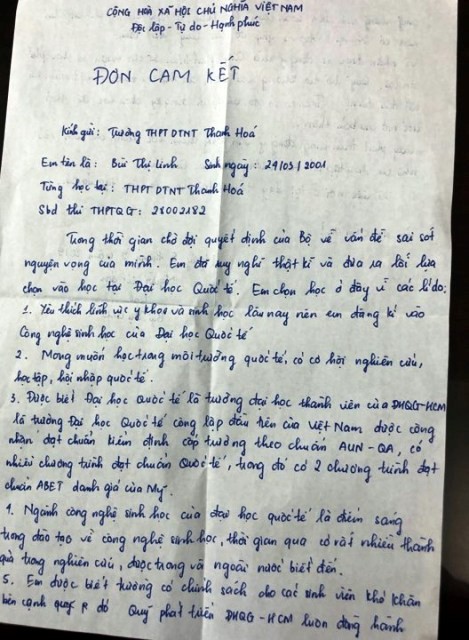 CỘNG HOÀ XÃ HỘI CHỦ NGHĨA VIỆT NAM
Độc lập - Tự do - Hạnh phúc
ĐƠN CAM KẾT
Kính gửi: Trường THPT DTNT Thanh Hoá
Em tên là: Bùi Thị Linh Sinh ngày: 29/03/2001
Từng học tại: THPT DTNT Thanh Hoá
Sbd thi THPTQG: 28002182
Trong thời gian chờ đợi quyết định của Bộ về vấn đề sai sót
nguyện vọng của mình. Em đã suy nghĩ thật kĩ và đưa ra lối lựa
chọn vào học tại Đại học Quốc tế. Em chọn học ở đây vì các lí do:
1. Yêu thích lĩnh vực y khoa và sinh học lâu nay nên em đăng kí vào
Công nghệ sinh học của Đại học Quốc tế
2. Mong muốn học trong môi trường quốc tế, có cơ hội nghiên cứu,
học tập, hội nhập quốc tế.
3. Được biết Đại học Quốc tế là trường đại học thành viên của ĐHQG-HCM
là trường Đại học Quốc tế công lập đầu tiên của Việt Nam được công
nhận đạt chuẩn kiểm định cấp trường theo chuẩn AUN-QA, có
nhiều chương trình đạt chuẩn Quốc tế, trong đó có 2 chương trình đạt
chuẩn ABET danh giá của Mỹ.
4. Ngành công nghệ sinh học của đại học quốc tế là điểm sáng
trong đào tạo về công nghệ sinh học, thời gian qua có rất nhiều thành
quả trong nghiên cứu, được trong và ngoài nước biết đến.
5. Em được biết trường có chính sách cho các sinh viên khó khăn
bên cạnh đó Quỹ phát triển ĐHQG-HCM luôn đồng hành